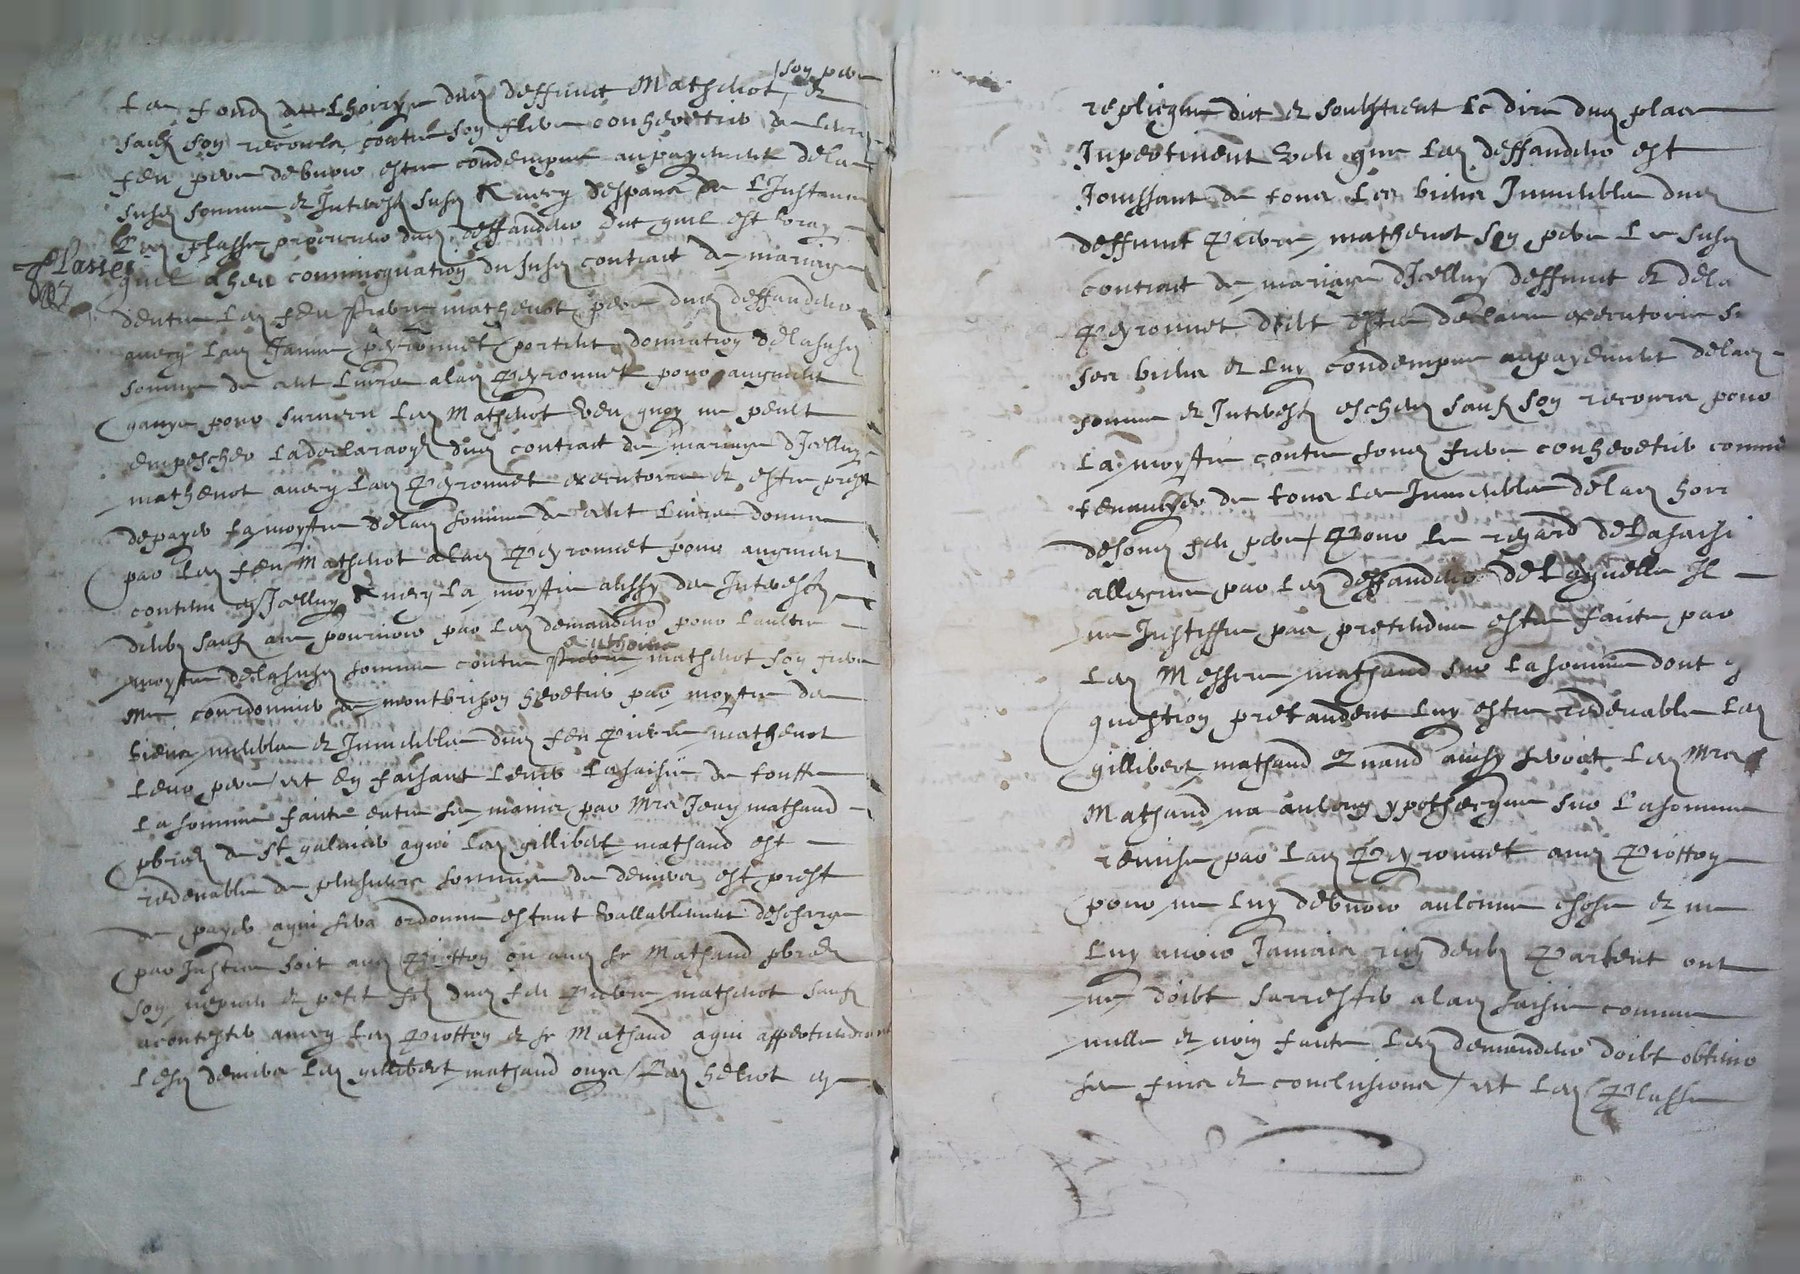 soy pere
Les fond de lhoirye dud deffunct Mathevot &
sauf soy recours contre soy frere coheretier de leur
feu pere debvoir estre condempne aupayement dela
susd somme & Interestz susd avecq despans de L'Instance
Led plasse procureur dud deffandeur dict quil est vray
plasse
quil a heu comunication du susd contract de mariage
dentre Led feu Pierre mathevot pere dud deffandeur
avecq Lad Janne peyronnet portent donnation delasusd
somme de cent Livres alad Peyronnet pour augment
gaigne pour survivre Led Mathevot Veu quoy ne peult
empescher Ladeclaraon dud contract de mariage d'Icelluy
mathevot avecq Lad Peyronnet executoire & estre prest
depayer la moytie delad somme de cent Livres donnee
par Led feu Mathevot alad Peyronnet pour augment
contenu en Icelluy Avecq La moytie aussy des Interestz
deubz sauf ase pourvoir par Led demandeur pour Laultre
Anthoine
moytie delasusd somme contre Pierre mathevot soy frere
Me courdonnier de montbrisoy heretier par moytie des
biens meubles & Immeubles dud feu Pierre mathevot
Leur pere / et en faisant Lever Lasaisie de toutte
La somme faicte entre ses mains par Mre Jean mathaud
pbre de St galmier aqui Led gillibert mathaud est
redevable de plusieurs sommes de deniers est prest
de payer aqui sera ordonne estant Vallablement descharge
par Justice soit aud Piottoy ou aud Sr Mathaud pbre
soy nepveu & petit filz dud feu Pierre mathevot sauf
acontester avecq Led Piottoy & Sr Mathaud aqui appertiendront
Lesd deniers Led gillibert mathaud ouys / Led heliot en
replicque dict & soubstient Le dire dud plasse
Inpertinent Veu que Led deffandeur est
Jouissant de tous Les biens Immeubles dud
deffunct Pierre mathevot soy pere Le susd
contract de mariage d'Icelluy deffunct & dela
Peyronnet doibt estre declaire executoire s
ses biens & Luy condempne aupayement delad
somme & Interestz escheuz sauf soy recours pour
La moytie contre soud frere coheretier comme
tenantier de tous Les Immeubles delad hoir
desoud feu pere / Pour Le regard delasaisi
alleguee par Led deffandeur de Laquelle Il
ne Justiffie pas pretendue estre faicte par
Led Messire mathaud sur Lasomme dont q
question pretandent Luy estre redevable Led
gillibert mathaud Quand ainsy seroict Led Mre
Mathaud na aulcung ypotheque sur Lasomme
remise par Lad Peyronnet aud Piottoy
pour ne Luy debvoir aulcune chose & ne
Luy avoir Jamais rien deub Partent ont
ne doibt sarrester alad saisie comme
nulle & non faicte Led demandeur doibt obtenir
ses fins & conclusions / et Led Plasse